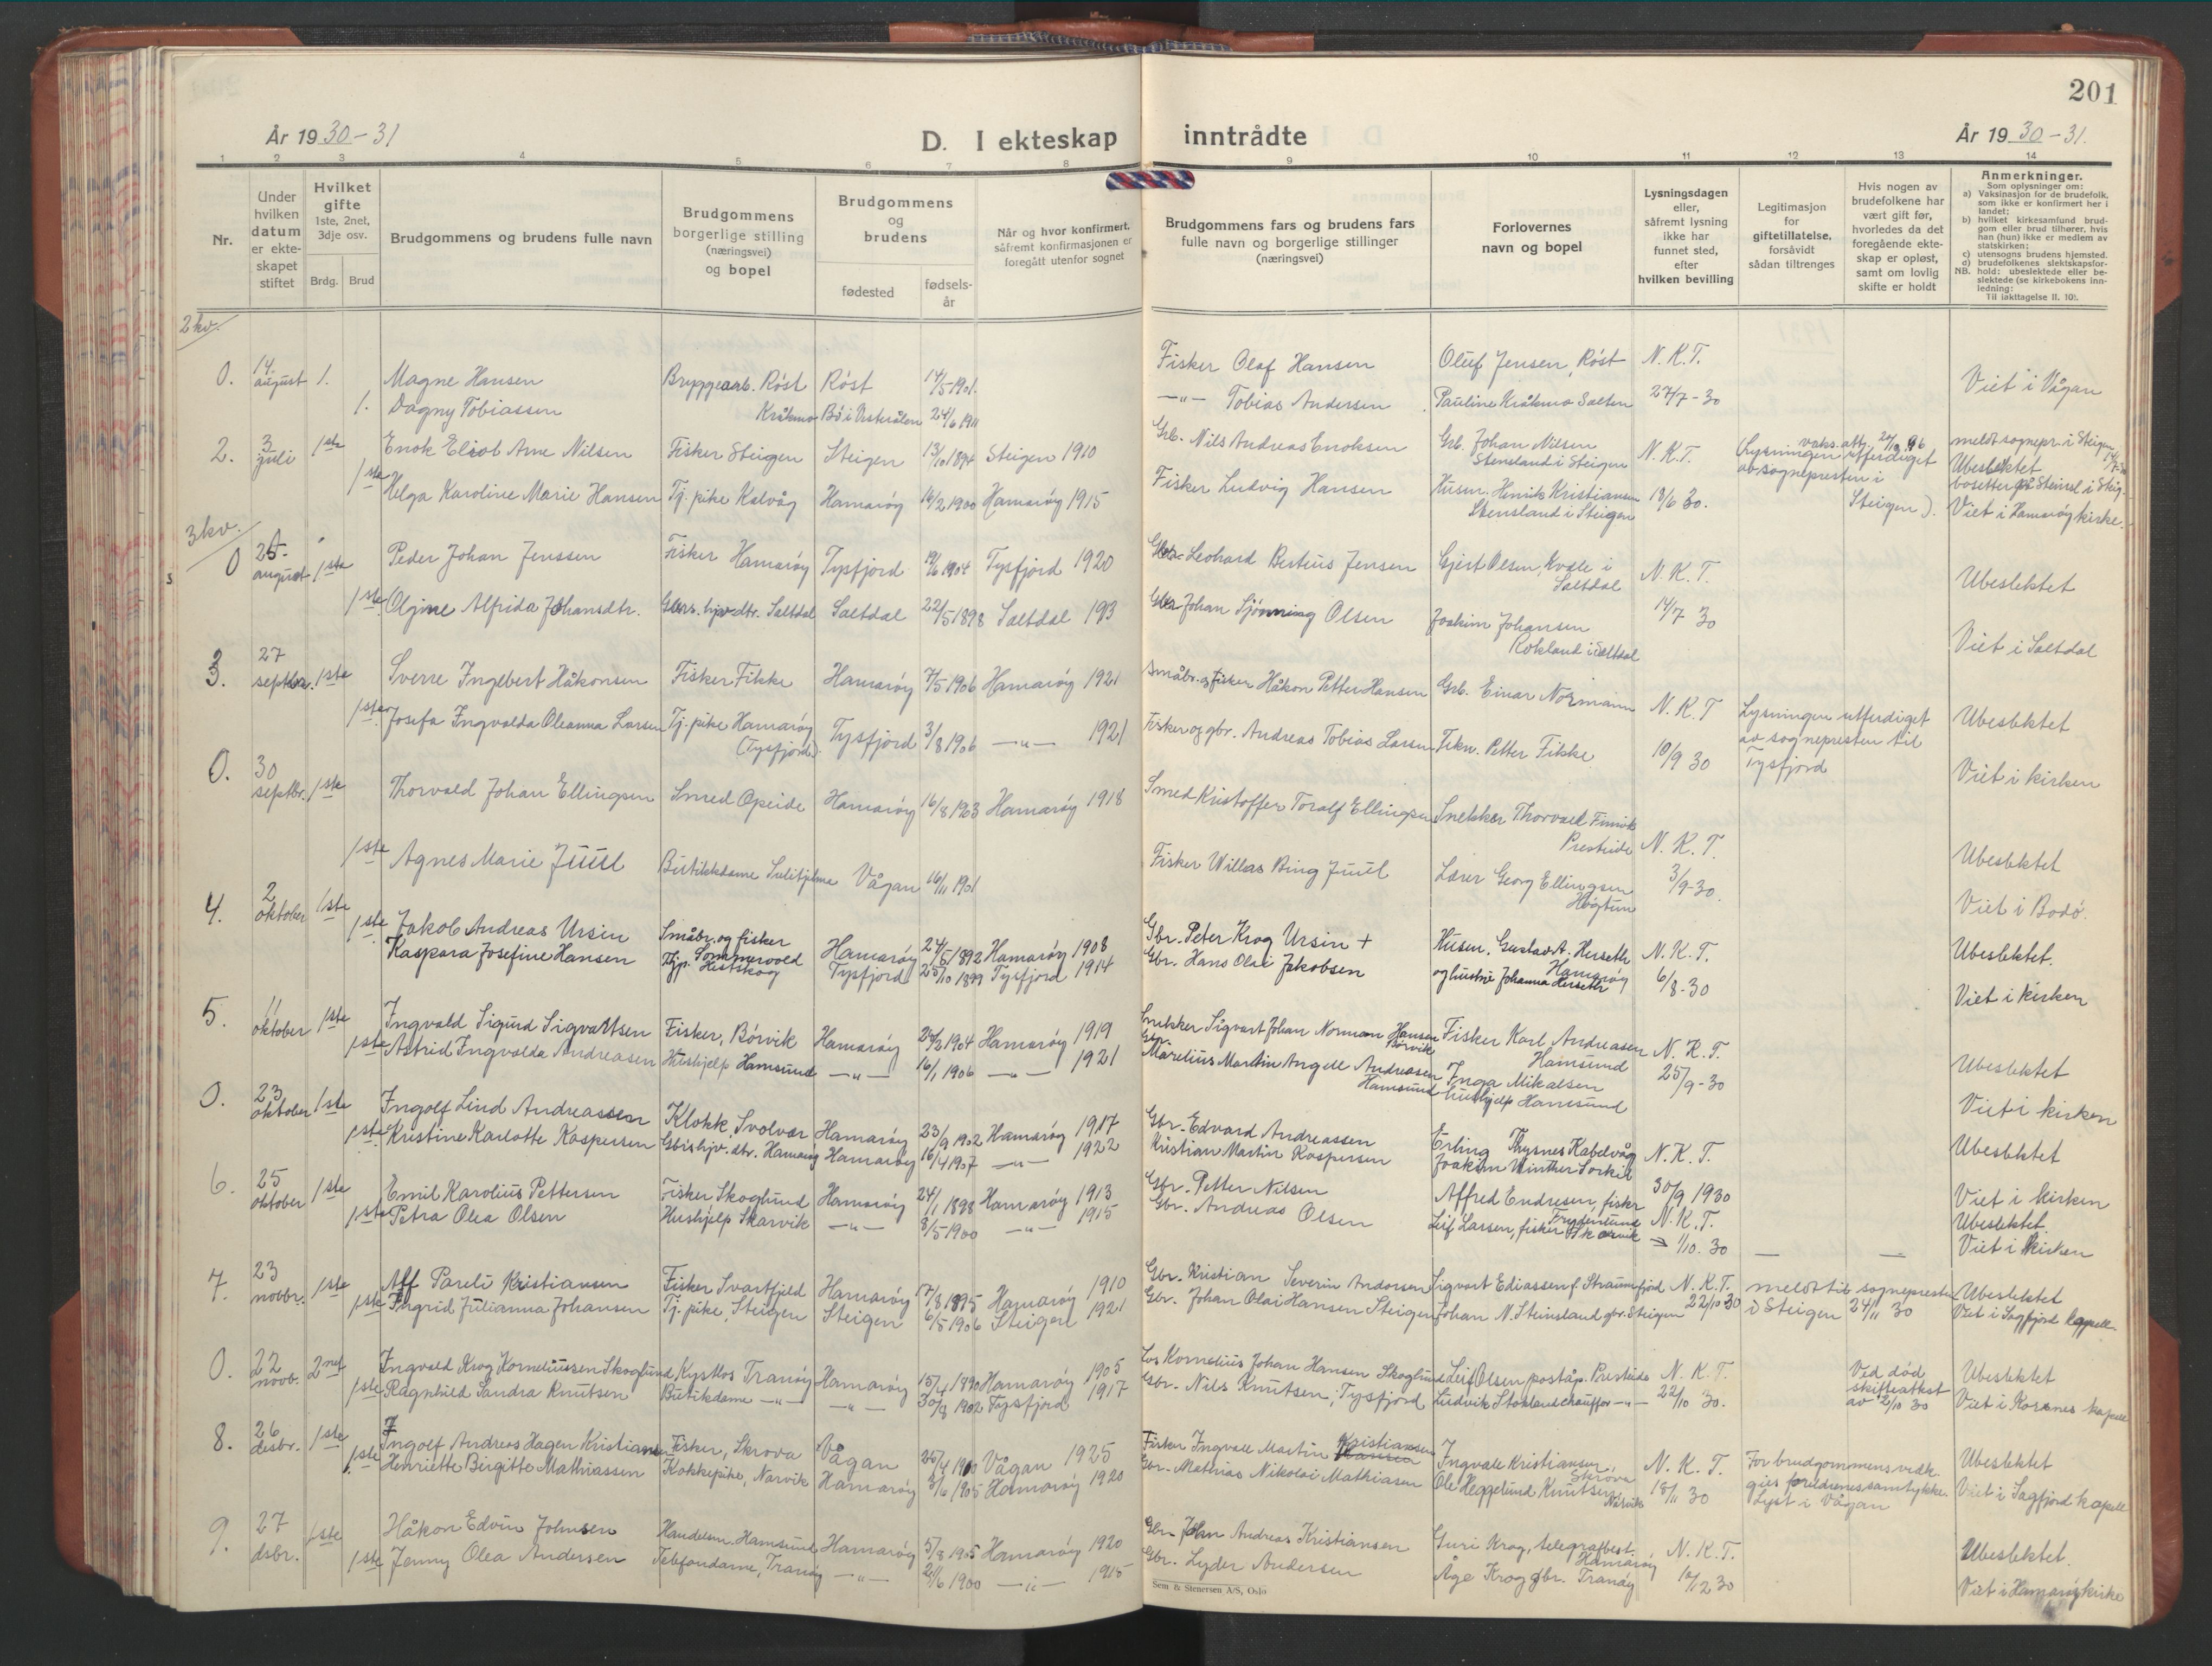 201
År 1930-31
D. I ekteskap inntrådte
År 1930-31.
1 2 3 4 5 6 7 8 9 10 11 12 13 14
Nr.
Under hvilken datum er ekteskapet stiftet
Hvilket gifte 1ste, 2net, 3dje osv.
Brdg. Brud
Brudgommens og brudens fulle navn
Brudgommens borgerlige stilling (næringsvei) og bopel
Brudgommens og brudens
fødested
fødselsår
Når og hvor konfirmert, såfremt konfirmasjonen er foregått utenfor sognet
Brudgommens fars og brudens fars fulle navn og borgerlige stillinger (næringsvei)
Forlovernes navn og bopel
Lysningsdagen eller, såfremt lysning ikke har funnet sted, efter hvilken bevilling
Legitimasjon for giftetillatelse, forsåvidt sådan tiltrenges
Hvis nogen av brudefolkene har vært gift før, hvorledes da det foregående ekteskap er opløst, samt om lovlig skifte er holdt
Anmerkninger.
Som oplysninger om:
a) Vaksinasjon for de brudefolk, som ikke er konfirmert her i landet;
b) hvilket kirkesamfund brudgom eller brud tilhører, hvis han (hun) ikke er medlem av statskirken;
c) utensogns brudens hjemsted.
d) brudefolkenes slektskapsforhold: ubeslektede eller beslektede (se kirkebokens innledning:
NB.
Til iakttagelse II. 10).
2 kv.
0. 14. august 1. Magne Hansen Bryggearb. Røst Røst 14/5 1901. Fisker Olaf Hansen Oluf Jensen, Røst N.K.T.
1. Dagny Tobiassen Kråkmo Bø i Vesterålen 24/6 1911 —"— Tobias Andersen Pauline Kråkmo Salten 27/7-30 Viet i Vågan
2. 3 juli 1ste Enok Eliot Arne Nilsen Fisker Steigen Steigen 13/10 1894 Steigen 1910 Grb. Nils Andreas Enoksen Grb. Johan Nilsen Stensland i Steigen N.K.T. (Lysningen utferdiget av sognepresten i Steigen). meldt sognepr. i Steigen Ubeslektet
1ste Helga Karoline Marie Hansen Tj. pike Kalvåg Hamarøy 16/2 1900 Hamarøy 1915 Fisker Ludvig Hansen Husm. Henrik Kristiansen Stensland i Steigen 18/6 30. Viet i Hamarøy kirke.
3 kv.
0 25. august 1ste Peder Johan Jenssen Fisker Hamarøy Tysfjord 19/6 1904 Tysfjord 1920 Leohard Bertius Jensen Gjert Olsen, Kvæle i Saltdal N.K.T. Ubeslektet
1ste Oljine Alfrida Johansdtr. Saltdal Saltdal 22/5 1898 Saltdal 1913 Johan Sjønning Olsen Joakim Johansen Rokland i Saltdal 14/7 30 Viet i Saltdal
3. 27 septbr. 1ste Sverre Ingebert Håkonsen Fisker Fikke Hamarøy 7/5 1906 Hamarøy 1921 Småbr. og fisker Håkon Petter Hansen Grb. Einar Normann N.K.T Lysningen utferdiget av sognepresten til Tysfjord Ubeslektet
1ste Josefa Ingvalda Oleanna Larsen Tj. pike Hamarøy (Tysfjord). Tysfjord 3/8 1906 —"— 1921 Fisker og gbr. Andreas Tobias Larsen Petter Fikke 10/9 30 Viet i kirken
0. 30 septbr. 1ste Thorvald Johan Ellingsen Smed Opeide Hamarøy 16/8 1903 Hamarøy 1918 Smed Kristoffer Toralf Ellingsen Snekker Thorvald Finvik Presteide N.K.T. Ubeslektet
1ste Agnes Marie Juul Butikkdame Sulitjelma Vågan 16/11 1901 Fisker Willas Bing Juul Lærer Georg Ellingsen Høgtun 3/9-30. Viet i Bodø.
4. 2 oktober 1ste Jakob Andreas Ursin Småbr. og fisker Sommervold Hamarøy 24/5 1892 Hamarøy 1908 Gbr. Peter Krog Ursin + Husm. Gustav A. Herseth Hamarøy N.K.T. Ubeslektet.
1ste Kaspara Josefine Hansen Tjp. Tysfjord 25/10 1899 Tysfjord 1914 Gbr. Hans Olai Jakobsen og hustru Johanna Herseth 6/8-30 Viet i kirken
5. 11 oktober 1ste Ingvald Sigurd Sigvartsen Fisker, Børvik Hamarøy 24/2 1904 Hamarøy 1919 Snekker Sigvart Johan Norman Hansen Børvik Fisker Karl Andreasen Hamsund N.K.T. Ubeslektet
1ste Astrid Ingvalda Andreasen Hushjelp Hamsund —"— 16/1 1906 —"— 1921 Gbr. Marelius Martin Angell Andreasen Hamsund Inga Mikalsen hushjelp Hamsund 25/9-30 Viet i kirken
0. 23 oktober 1ste Ingolf Lind Andreassen Klokk, Svolvær Hamarøy 23/9 1902 Hamarøy 1917 Gbr. Edvard Andreassen Erling Thysnes Kabelvåg N.K.T. Ubeslektet
1ste Kristine Karlotte Kaspersen Hamarøy Hamarøy 16/4 1907 —"— 1922 Kristian Martin Kaspersen Joakim Winther Sorkil 30/9 1930 Viet i kirken
6. 25 oktober 1ste Emil Karolius Pettersen Fisker Skoglund Hamarøy 24/1 1898 Hamarøy 1913 Gbr. Petter Nilsen Alfred Endresen, fisker N.K.T. Ubeslektet
1ste Petra Olea Olsen Hushjelp Skarvik —"— 8/5 1900 —"— 1915 Gbr. Andreas Olsen Leif Larsen, fisker Skarvik 1/10. 30 — — Viet i kirken
7. 23 novbr. 1ste Alf Pareli Kristiansen Fisker Svartfjeld Hamarøy 17/8 1895 Hamarøy 1910 Gbr. Kristian Severin Andorsen Sigvart Ediassen f. Straumfjord N.K.T. meldt til sognepresten Ubeslektet
1ste Ingrid Julianna Johansen Tj. pike, Steigen Steigen 6/5 1906 Steigen 1921 Gbr. Johan Olai Hansen Steigen Johan N. Steinsland gbr. Steigen 22/10 30 i Steigen 24/11 30 Viet i Sagfjord kapell
0. 22 novb. 2net Ingvald Krog Korneliussen Skoglund Kystlos Tranøy Hamarøy 15/4 1890 Hamarøy 1905 Los Kornelius Johan Hansen Skoglund Leif Olsen, poståp. Presteide N.K.T. Ved død skifteattest av 2/10 30 Ubeslektet
1ste Ragnhild Sandra Knutsen Butikdame —"— —"— 30/8 1902 Tysfjord 1917 Gbr. Nils Knutsen, Tysfjord Ludvik Stokland chauffør —"— 22/10 30. Viet i Korsnes kapell
8. 26 desbr. 1ste Ingolf Andreas Hagen Kristiansen Fisker, Skrova Vågan 25/4 1910 Vågan 1925 Fisker Ingvald Martin Kristiansen Ingvald Kristiansen Skrova N.K.T. For brudgommens vedk. gies foreldrenes samtykke. Ubeslektet
1ste Henriette Birgitte Mathiassen Kokkepike, Narvik Hamarøy 3/6 1905 Hamarøy 1920 Gbr. Mathias Nikolai Mathiasen Ole Heggelund Knutsen Narvik 18/11 30 Lyst i Vågan Viet i Sagfjord kapell
9. 27 dsbr. 1ste Håkon Edvin Johnsen Handelsm. Hamsund Hamarøy 5/8 1905 Hamarøy 1920 Gbr. John Andreas Kristiansen Guri Krog, telegrafbest. Hamarøy N.K.T. Ubeslektet.
1ste Jenny Olea Andersen Telefondame, Tranøy —"— 21/6 1900 —"— 1915 Gbr. Lyder Andersen Åge Krog gbr. Tranøy 10/12 30 Viet i Hamarøy kirke
Sem & Stenersen A/S, Oslo